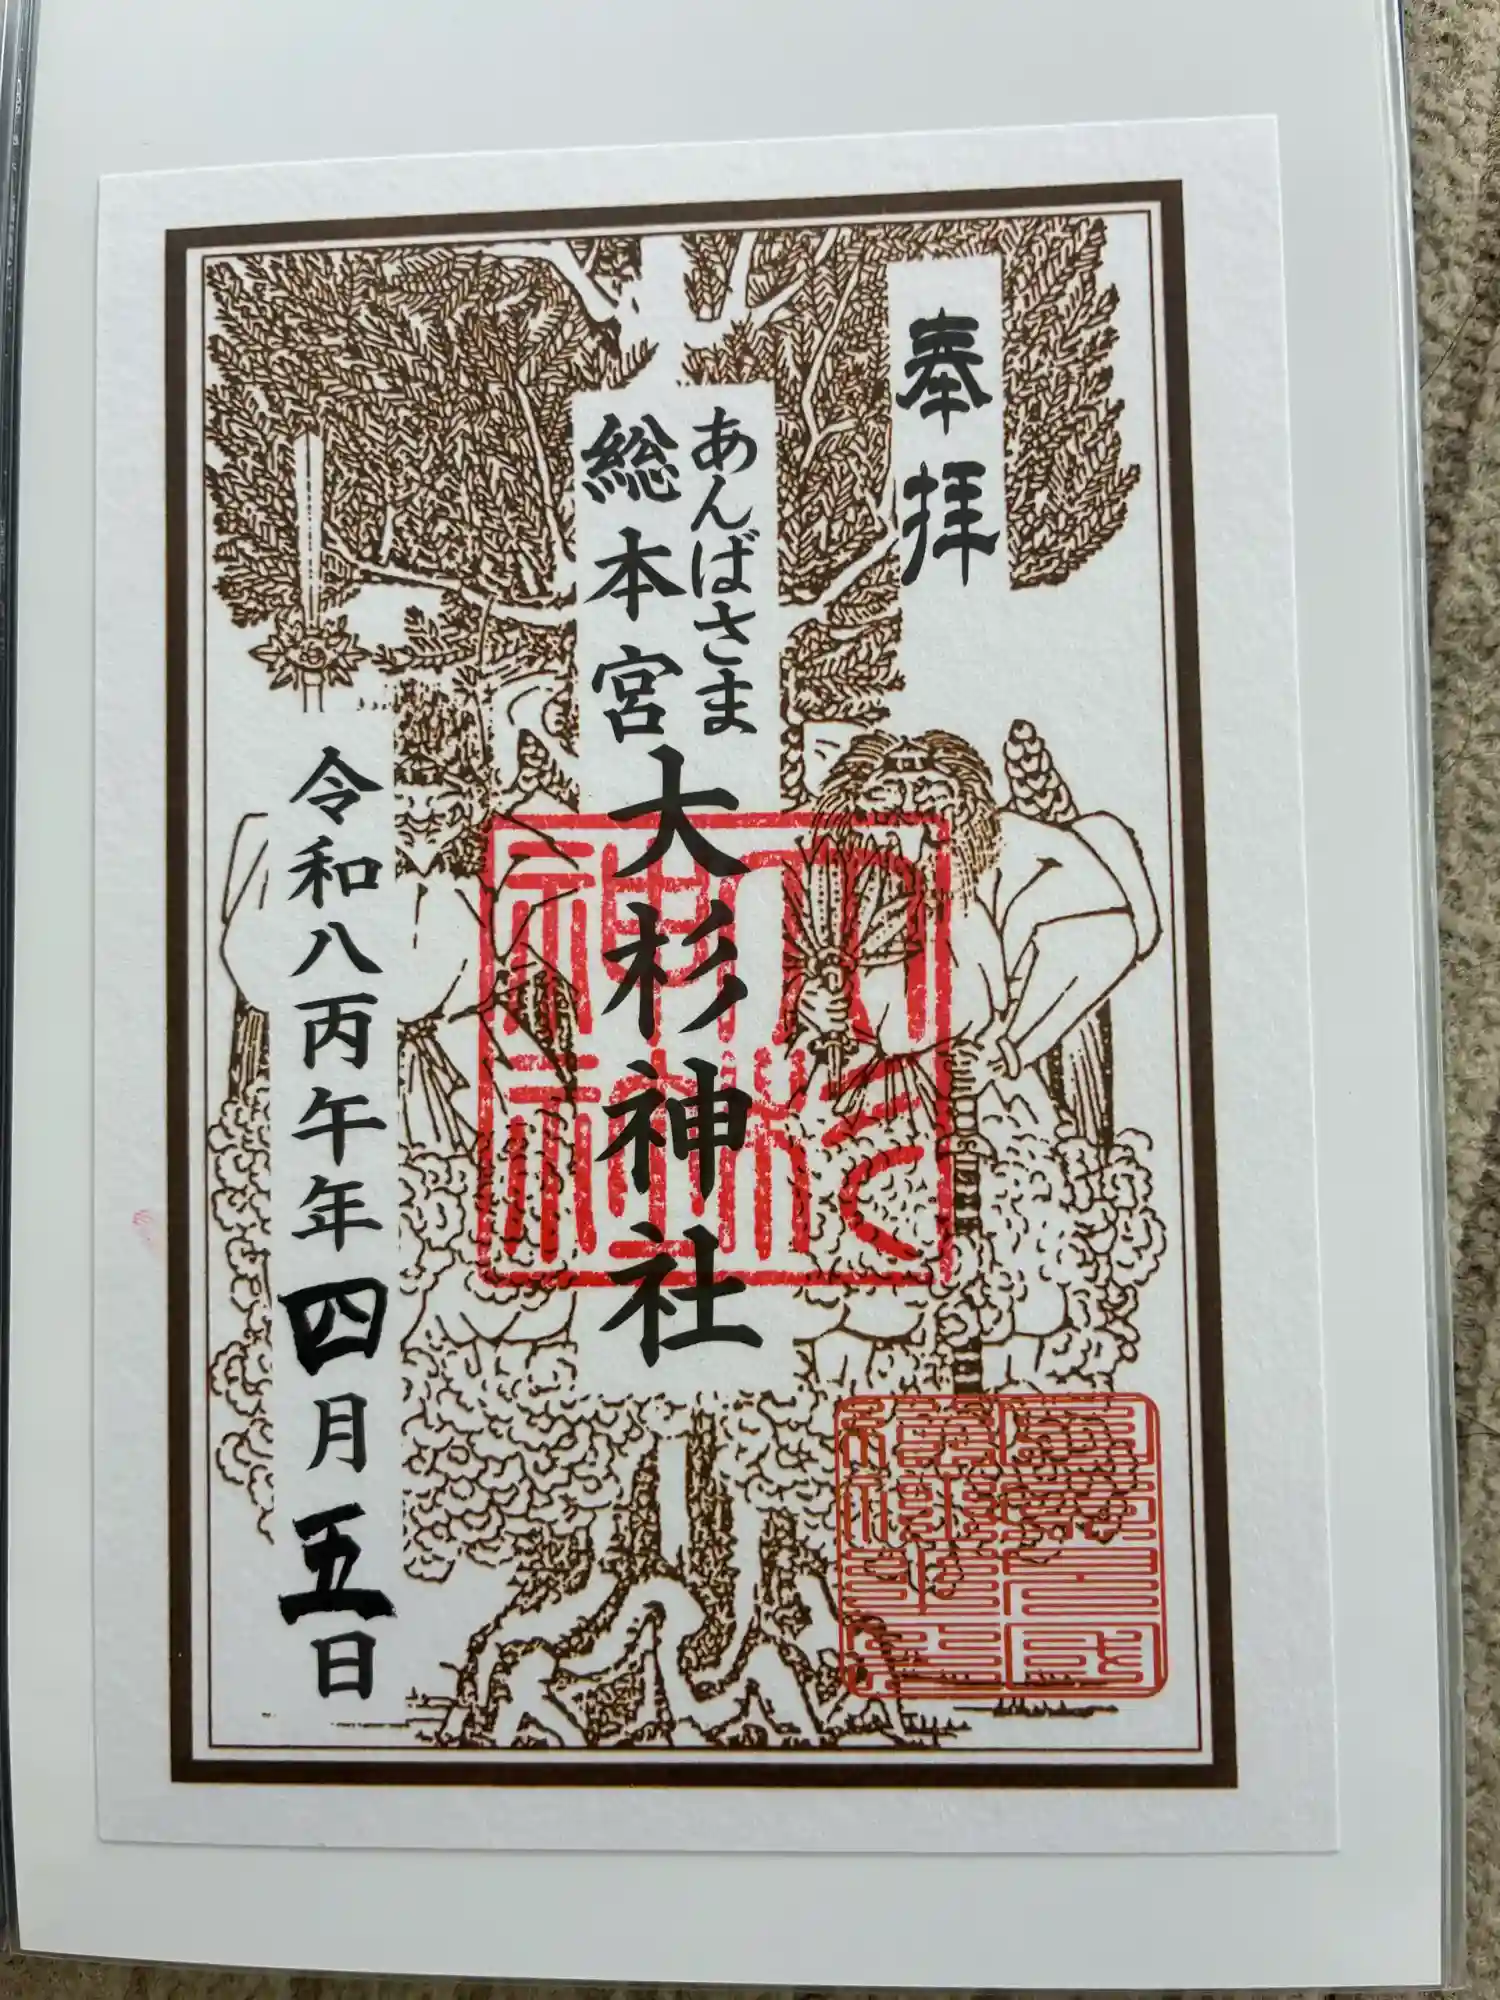 奉拝
あんばさま
総本宮
大杉神社
大杉神社
令和八丙午年四月五日